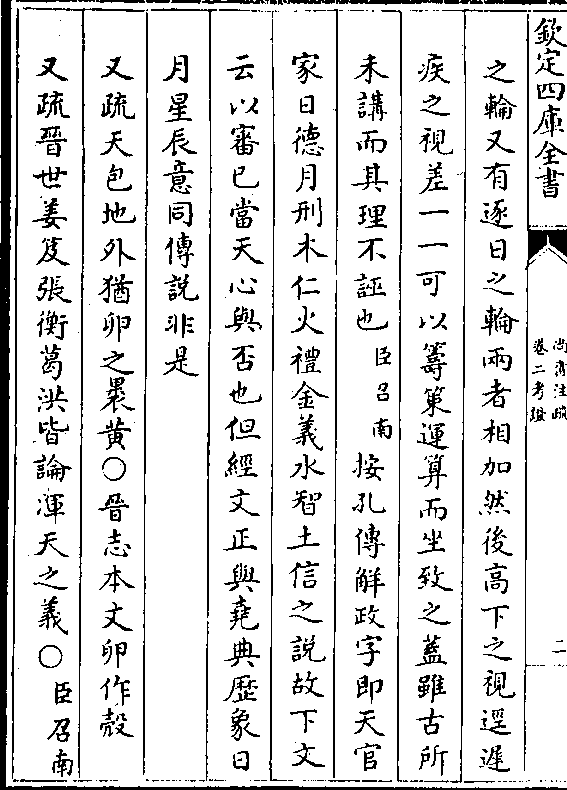 欽定四庫全書
尚書注疏
卷二考證
二
之輪又有逐日之輪兩者相加然後高下之視遲
疾之視差一一可以籌策運算而坐致之蓋雖古所
未講而其理不誣也臣召南按孔傳解政字即天官
家日德月刑木仁火禮金義水智土信之說故下文
云以審已當天心與否也但經文正與堯典歷象日
月星辰意同傳說非是
又疏天包地外猶卵之裹黃○晉志本文卵作殼
又疏晉世姜岌張衡葛洪皆論渾天之義○臣召南